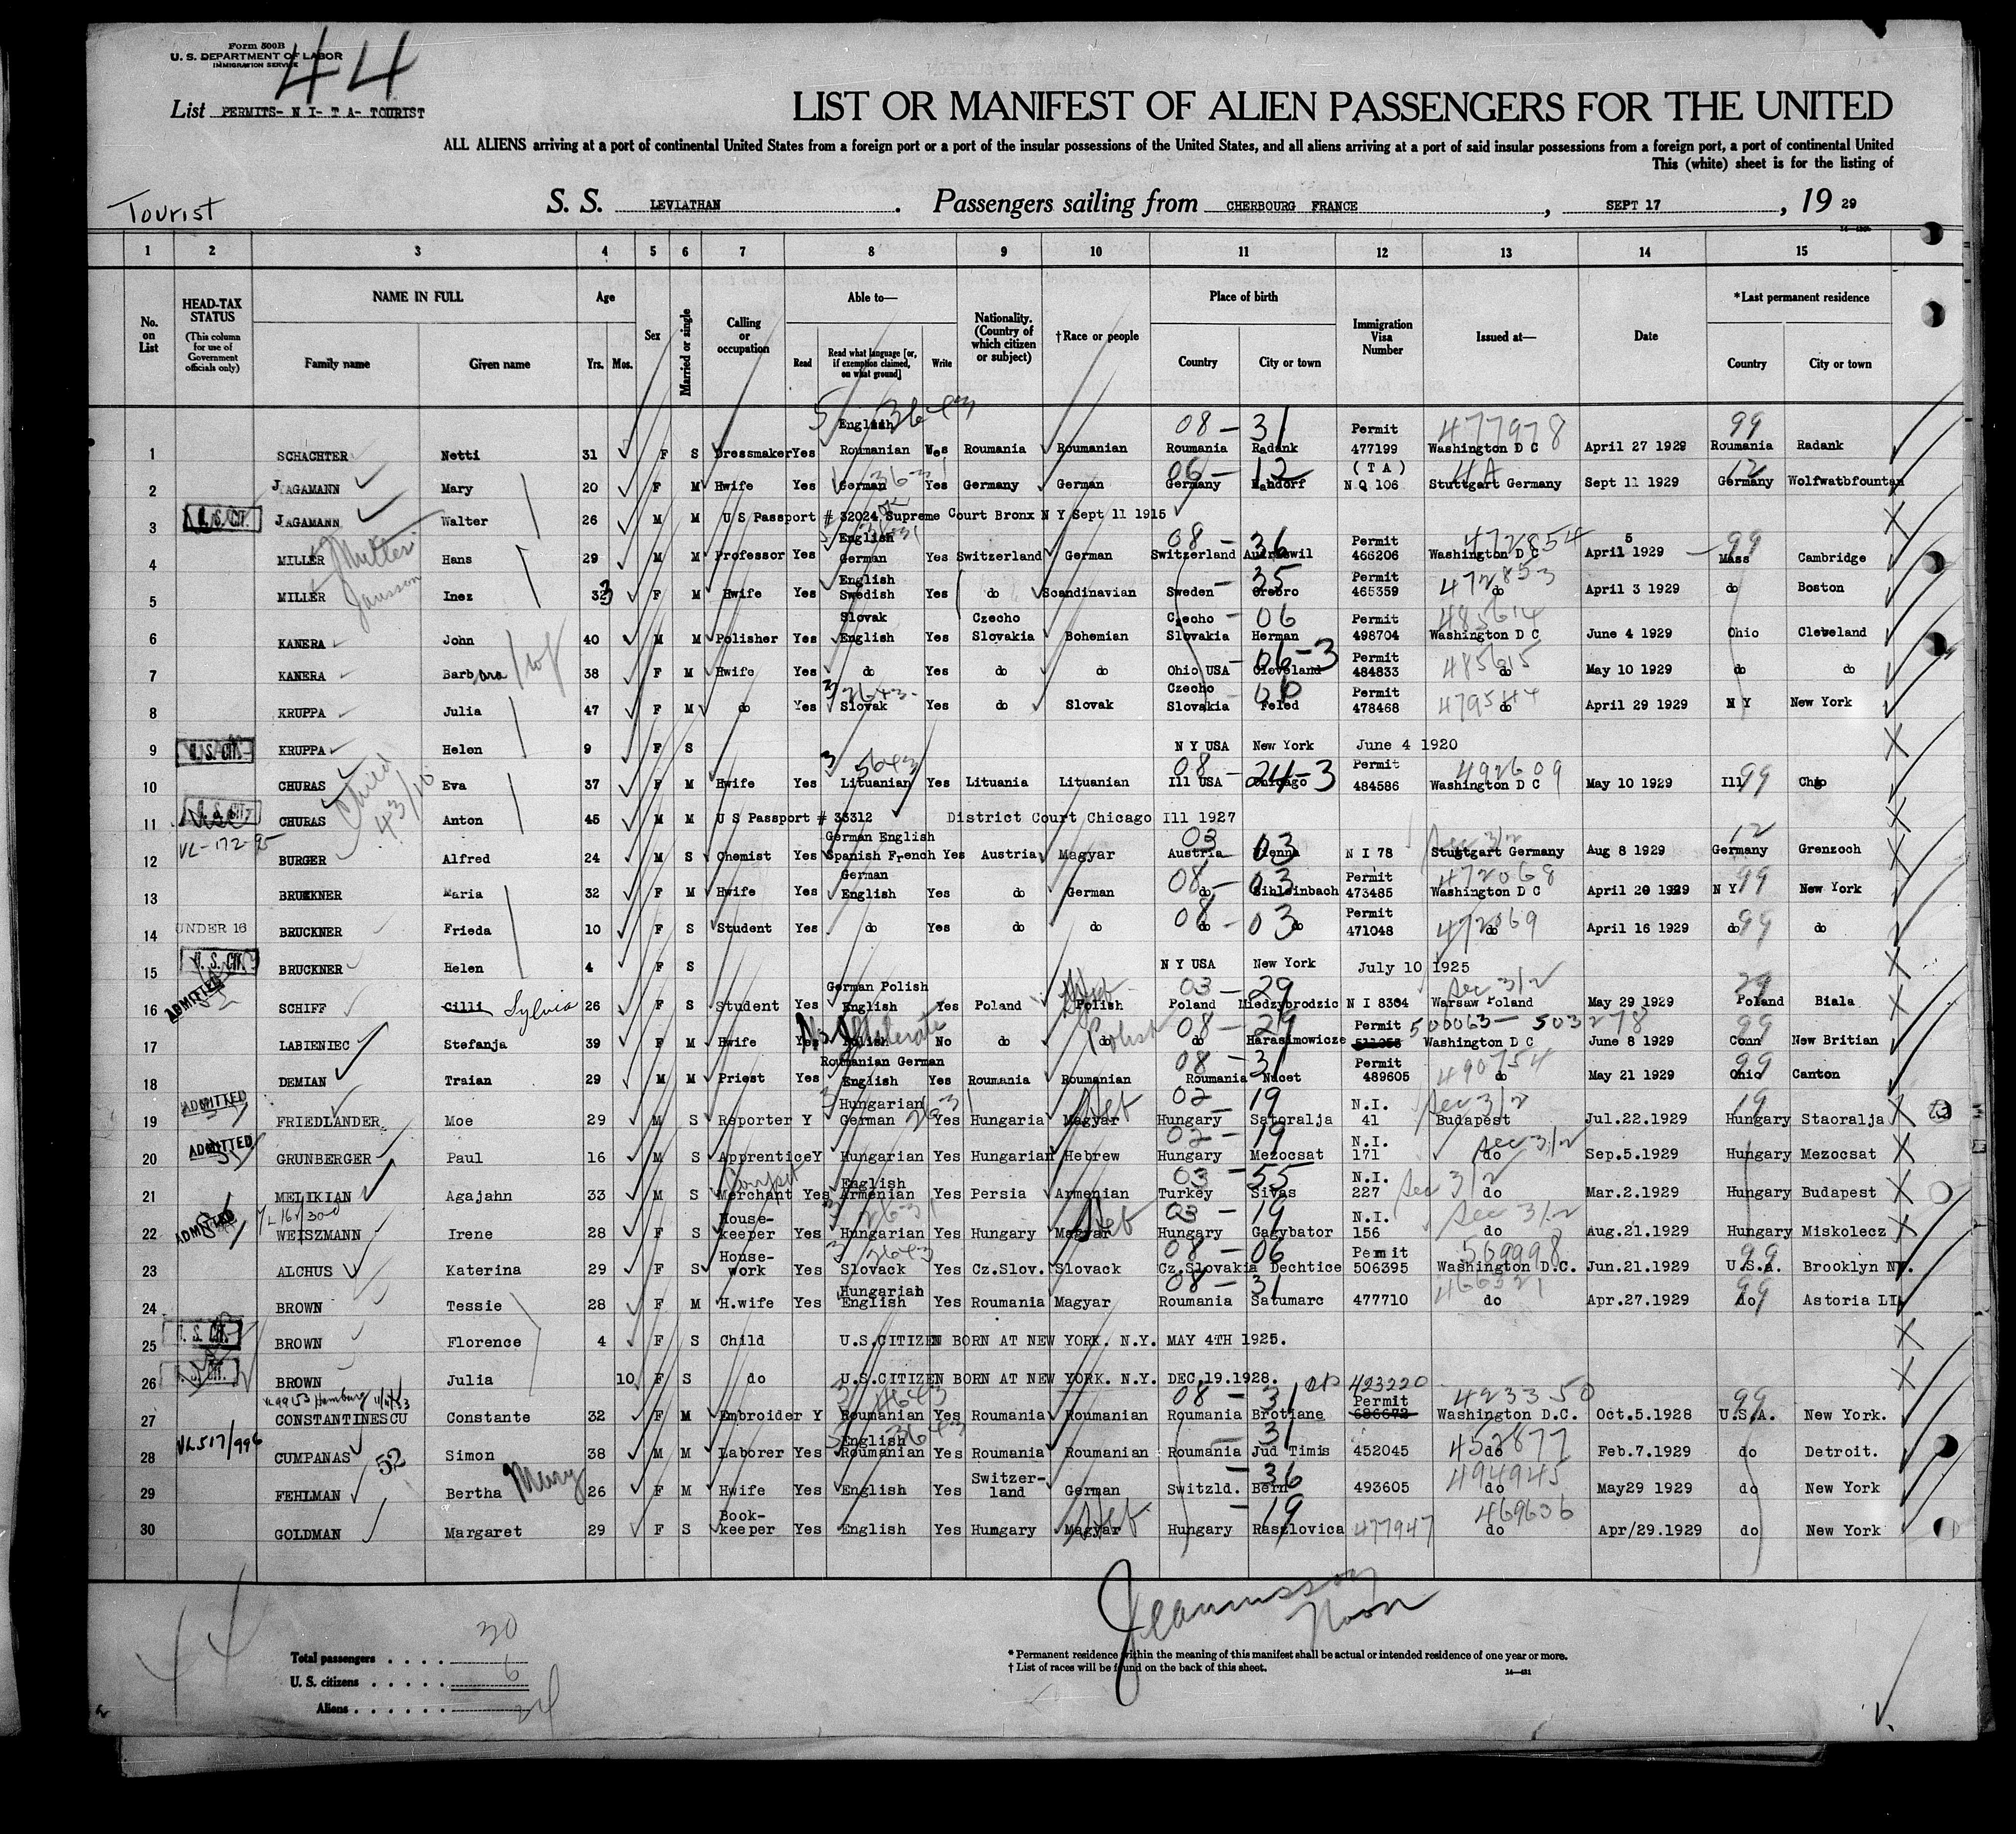 Form 500B
U. S. DEPARTMENT OF LABOR
IMMIGRATION SERVICE
44
List PERMITS- N I- T A- TOURIST
LIST OR MANIFEST OF ALIEN PASSENGERS FOR THE UNITED
ALL ALIENS arriving at a port of continental United States from a foreign port or a port of the insular possessions of the United States, and all aliens arriving at a port of said insular possessions from a foreign port, a port of continental United
This (white) sheet is for the listing of
Tourist
S. S. LEVIATHAN . Passengers sailing from CHERBOURG FRANCE , SEPT 17 , 19 29
1 2 3 4 5 6 7 8 9 10 11 12 13 14 15
No. on List
HEAD-TAX STATUS (This column for use of Government officials only)
NAME IN FULL Family name Given name
Age Yrs. Mos.
Sex
Married or single
Calling or occupation
Able to— Read Read what language [or, if exemption claimed, on what ground] Write
Nationality. (Country of which citizen or subject)
† Race or people
Place of birth Country City or town
Immigration Visa Number
Issued at—
Date
*Last permanent residence Country City or town
5 English 3643 08 - 31 Permit 477978 99
1 SCHACHTER Netti 31 F S Dressmaker Yes Roumanian Yes Roumania Roumanian Roumania Radank 477199 Washington D C April 27 1929 Roumania Radank
06 - 12 (T A) 12
2 JAGAMANN Mary 20 F M Hwife Yes German Yes Germany German Germany Mahdorf N Q 106 Stuttgart Germany Sept 11 1929 Germany Wolfwatbfountan
3 U. S. CIT. JAGAMANN Walter 26 M M U S Passport # 32024 Supreme Court Bronx N Y Sept 11 1915
Muller English 08 - 36 Permit 472854 5 99
4 MILLER Hans 29 M M Professor Yes German Yes Switzerland German Switzerland 466206 Washington D C April 1929 Mass Cambridge
Jansson English 35 Permit 472853
5 MILLER Inez 32 F M Hwife Yes Swedish Yes do Scandinavian Sweden Orebro 465359 do April 3 1929 do Boston
Slovak Czecho Czecho 06 Permit 485614
6 KANERA John 40 M M Polisher Yes English Yes Slovakia Bohemian Slovakia Herman 498704 Washington D C June 4 1929 Ohio Cleveland
wf 06-3 Permit 485615
7 KANERA Barbara 38 F M Hwife Yes do Yes do do Ohio USA Cleveland 484833 do May 10 1929 do do
3 2643 Czecho 06 Permit 479544
8 KRUPPA Julia 47 F M do Yes Slovak Yes do Slovak Slovakia Feled 478468 do April 29 1929 N Y New York
9 U. S. CIT. KRUPPA Helen 9 F S N Y USA New York June 4 1920
3 5643 08 - 24-3 Permit 492609 99
10 CHURAS Eva 37 F M Hwife Yes Lituanian Yes Lituania Lituanian Ill USA Chicago 484586 Washington D C May 10 1929 Ill Chgo
11 U. S. CIT. CHURAS Anton 45 M M U S Passport # 33312 District Court Chicago Ill 1927
VL-172-95 German English 03 03 Sec 3/2 12
12 BURGER Alfred 24 M S Chemist Yes Spanish French Yes Austria Magyar Austria Vienna N I 78 Stuttgart Germany Aug 8 1929 Germany Grenzoch
German 08 - 03 Permit 472068 99
13 BRUCKNER Maria 32 F M Hwife Yes English Yes do German do Eihleinbach 473485 Washington D C April 20 1929 N Y New York
08 - 03 Permit 472069 99
14 UNDER 16 BRUCKNER Frieda 10 F S Student Yes do Yes do do do do 471048 do April 16 1929 do do
15 U. S. CIT. BRUCKNER Helen 4 F S N Y USA New York July 10 1925
ADMITTED German Polish Heb 03 - 29 Sec 3/2 29
16 SCHIFF Cilli Sylvia 26 F S Student Yes English Yes Poland Polish Poland Miedzybrodzic N I 8304 Warsaw Poland May 29 1929 Poland Biala
No Illiterate Polish 08 - 29 Permit 500063- 503278 99
17 LABIENIEC Stefanja 39 F M Hwife Yes Polish No do do do Harasimowicze Washington D C June 8 1929 Conn New Britian
Roumanian German 08 - 31 Permit 490754 99
18 DEMIAN Traian 29 M M Priest Yes English Yes Roumania Roumanian Roumania Nucet 489605 do May 21 1929 Ohio Canton
ADMITTED 3 Hungarian 263 Heb 02 19 N.I. Sec 3/2 19
19 FRIEDLANDER Moe 29 M S Reporter Y German Yes Hungaria Magyar Hungary Satoralja 41 Budapest Jul.22.1929 Hungary Staoralja
ADMITTED 02 - 19 N.I. Sec 3/2
20 GRUNBERGER Paul 16 M S Apprentice Y Hungarian Yes Hungarian Hebrew Hungary Mezocsat 171 do Sep.5.1929 Hungary Mezocsat
English 03 - 55 N.I. Sec 3/2
21 MELIKIAN Agajahn 33 M S Merchant Yes Armenian Yes Persia Armenian Turkey Sivas 227 do Mar.2.1929 Hungary Budapest
ADMITTED House- Heb 03 - 19 N.I. Sec 3/2
22 WEISZMANN Irene 28 F S keeper Yes Hungarian Yes Hungary Magyar Hungary Gagybator 156 do Aug.21.1929 Hungary Miskolecz
House- 3 2643 08 - 06 Permit 99
23 ALCHUS Katerina 29 F S work Yes Slovack Yes Cz.Slov. Slovack Cz.Slovakia Dechtice 506395 Washington D.C. Jun.21.1929 U.S.A. Brooklyn NY.
Hungarian 08 - 31 466321 99
24 BROWN Tessie 28 F M H.wife Yes English Yes Roumania Magyar Roumania Satumarc 477710 do Apr.27.1929 do Astoria LI
25 U. S. CIT. BROWN Florence 4 F S Child U.S.CITIZEN BORN AT NEW YORK. N.Y. MAY 4TH 1925.
26 U. S. CIT. BROWN Julia 10 F S do U.S.CITIZEN BORN AT NEW YORK. N.Y. DEC.19.1928.
Hamburg 3 4643 08 - 31 423220 Permit 423350 99
27 CONSTANTINESCU Constante 32 F M Embroider Y Roumanian Yes Roumania Roumanian Roumania Brotiane 686672 Washington D.C. Oct.5.1928 U.S.A. New York.
VL517/996 English 3643 31 452877
28 CUMPANAS 52 Simon 38 M M Laborer Yes Roumanian Yes Roumania Roumanian Roumania Jud Timis 452045 do Feb.7.1929 do Detroit.
Mary Switzer- - 36 494945
29 FEHLMAN Bertha 26 F M Hwife Yes English Yes land German Switzld. Bern 493605 do May29 1929 do New York
Book- Heb - 19 469636
30 GOLDMAN Margaret 29 F S keeper Yes English Yes Hungary Magyar Hungary Raszlovica 477947 do Apr/29.1929 do New York
44
Total passengers . . . . 30
U. S. citizens . . . . . 6
Aliens . . . . . . 24
* Permanent residence within the meaning of this manifest shall be actual or intended residence of one year or more.
† List of races will be found on the back of this sheet.
14—431